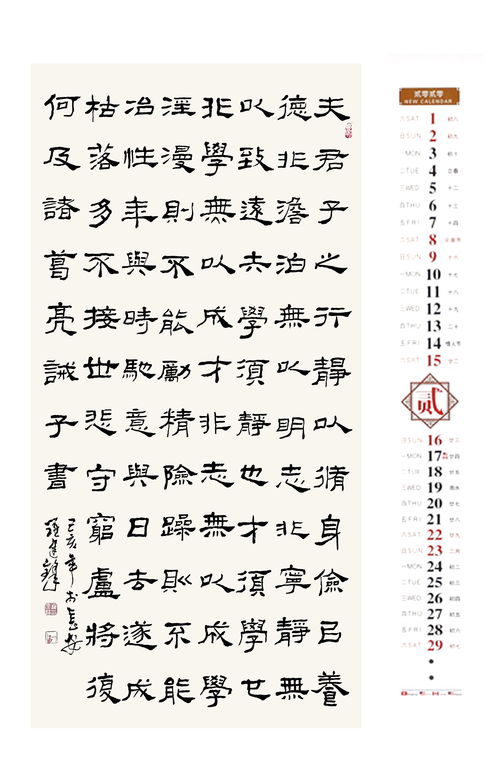 夫君子之行靜以脩身儉以養
德非澹泊無以明志非寧靜無
以致遠夫學須靜也才須學也
非學無以成才非志無以成學
淫漫則不能勵精險躁則不能
冶性年與時馳意與日去遂成
枯落多不接世悲守窮廬將復
何及諸葛亮誡子書
己亥年於長安
贰零贰零
NEW CALENDAR
六 SAT 1 初八
日 SUN 2 初九
一 MON 3 初十
二 TUE 4 立春
三 WED 5 十二
四 THU 6 十三
五 FRI 7 十四
六 SAT 8 元宵节
日 SUN 9 十六
一 MON 10 十七
二 TUE 11 十八
三 WED 12 十九
四 THU 13 二十
五 FRI 14 情人节
六 SAT 15 廿二
贰
日 SUN 16 廿三
一 MON 17 廿四
二 TUE 18 廿五
三 WED 19 雨水
四 THU 20 廿七
五 FRI 21 廿八
六 SAT 22 廿九
日 SUN 23 二月
一 MON 24 初二
二 TUE 25 初三
三 WED 26 初四
四 THU 27 初五
五 FRI 28 初六
六 SAT 29 初七